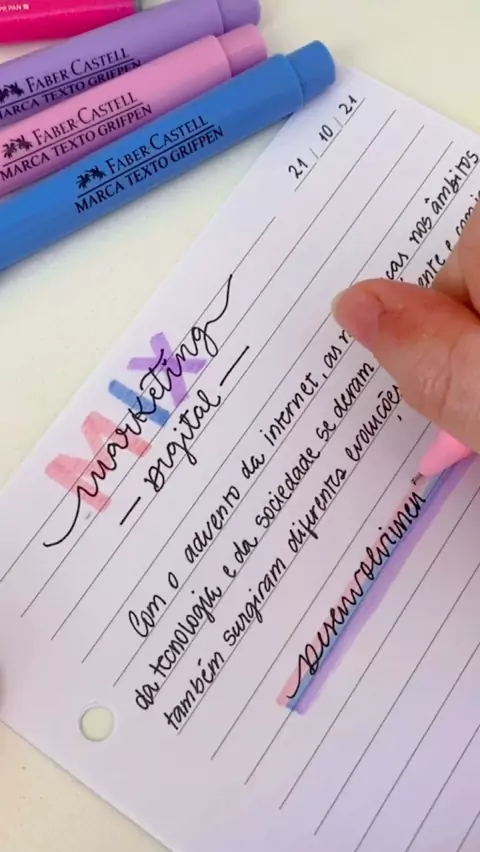 FABER-CASTELL
MARCA TEXTO GRIFPEN
FABER-CASTELL
MARCA TEXTO GRIFPEN
FABER-CASTELL
MARCA TEXTO GRIFPEN
21 / 10 / 21
MIX
marketing
— Digital —
Com o advento da internet, as nos âmbitos
da tecnologia e da sociedade se deram
também surgiram diferentes evoluções,
Desenvolvimen